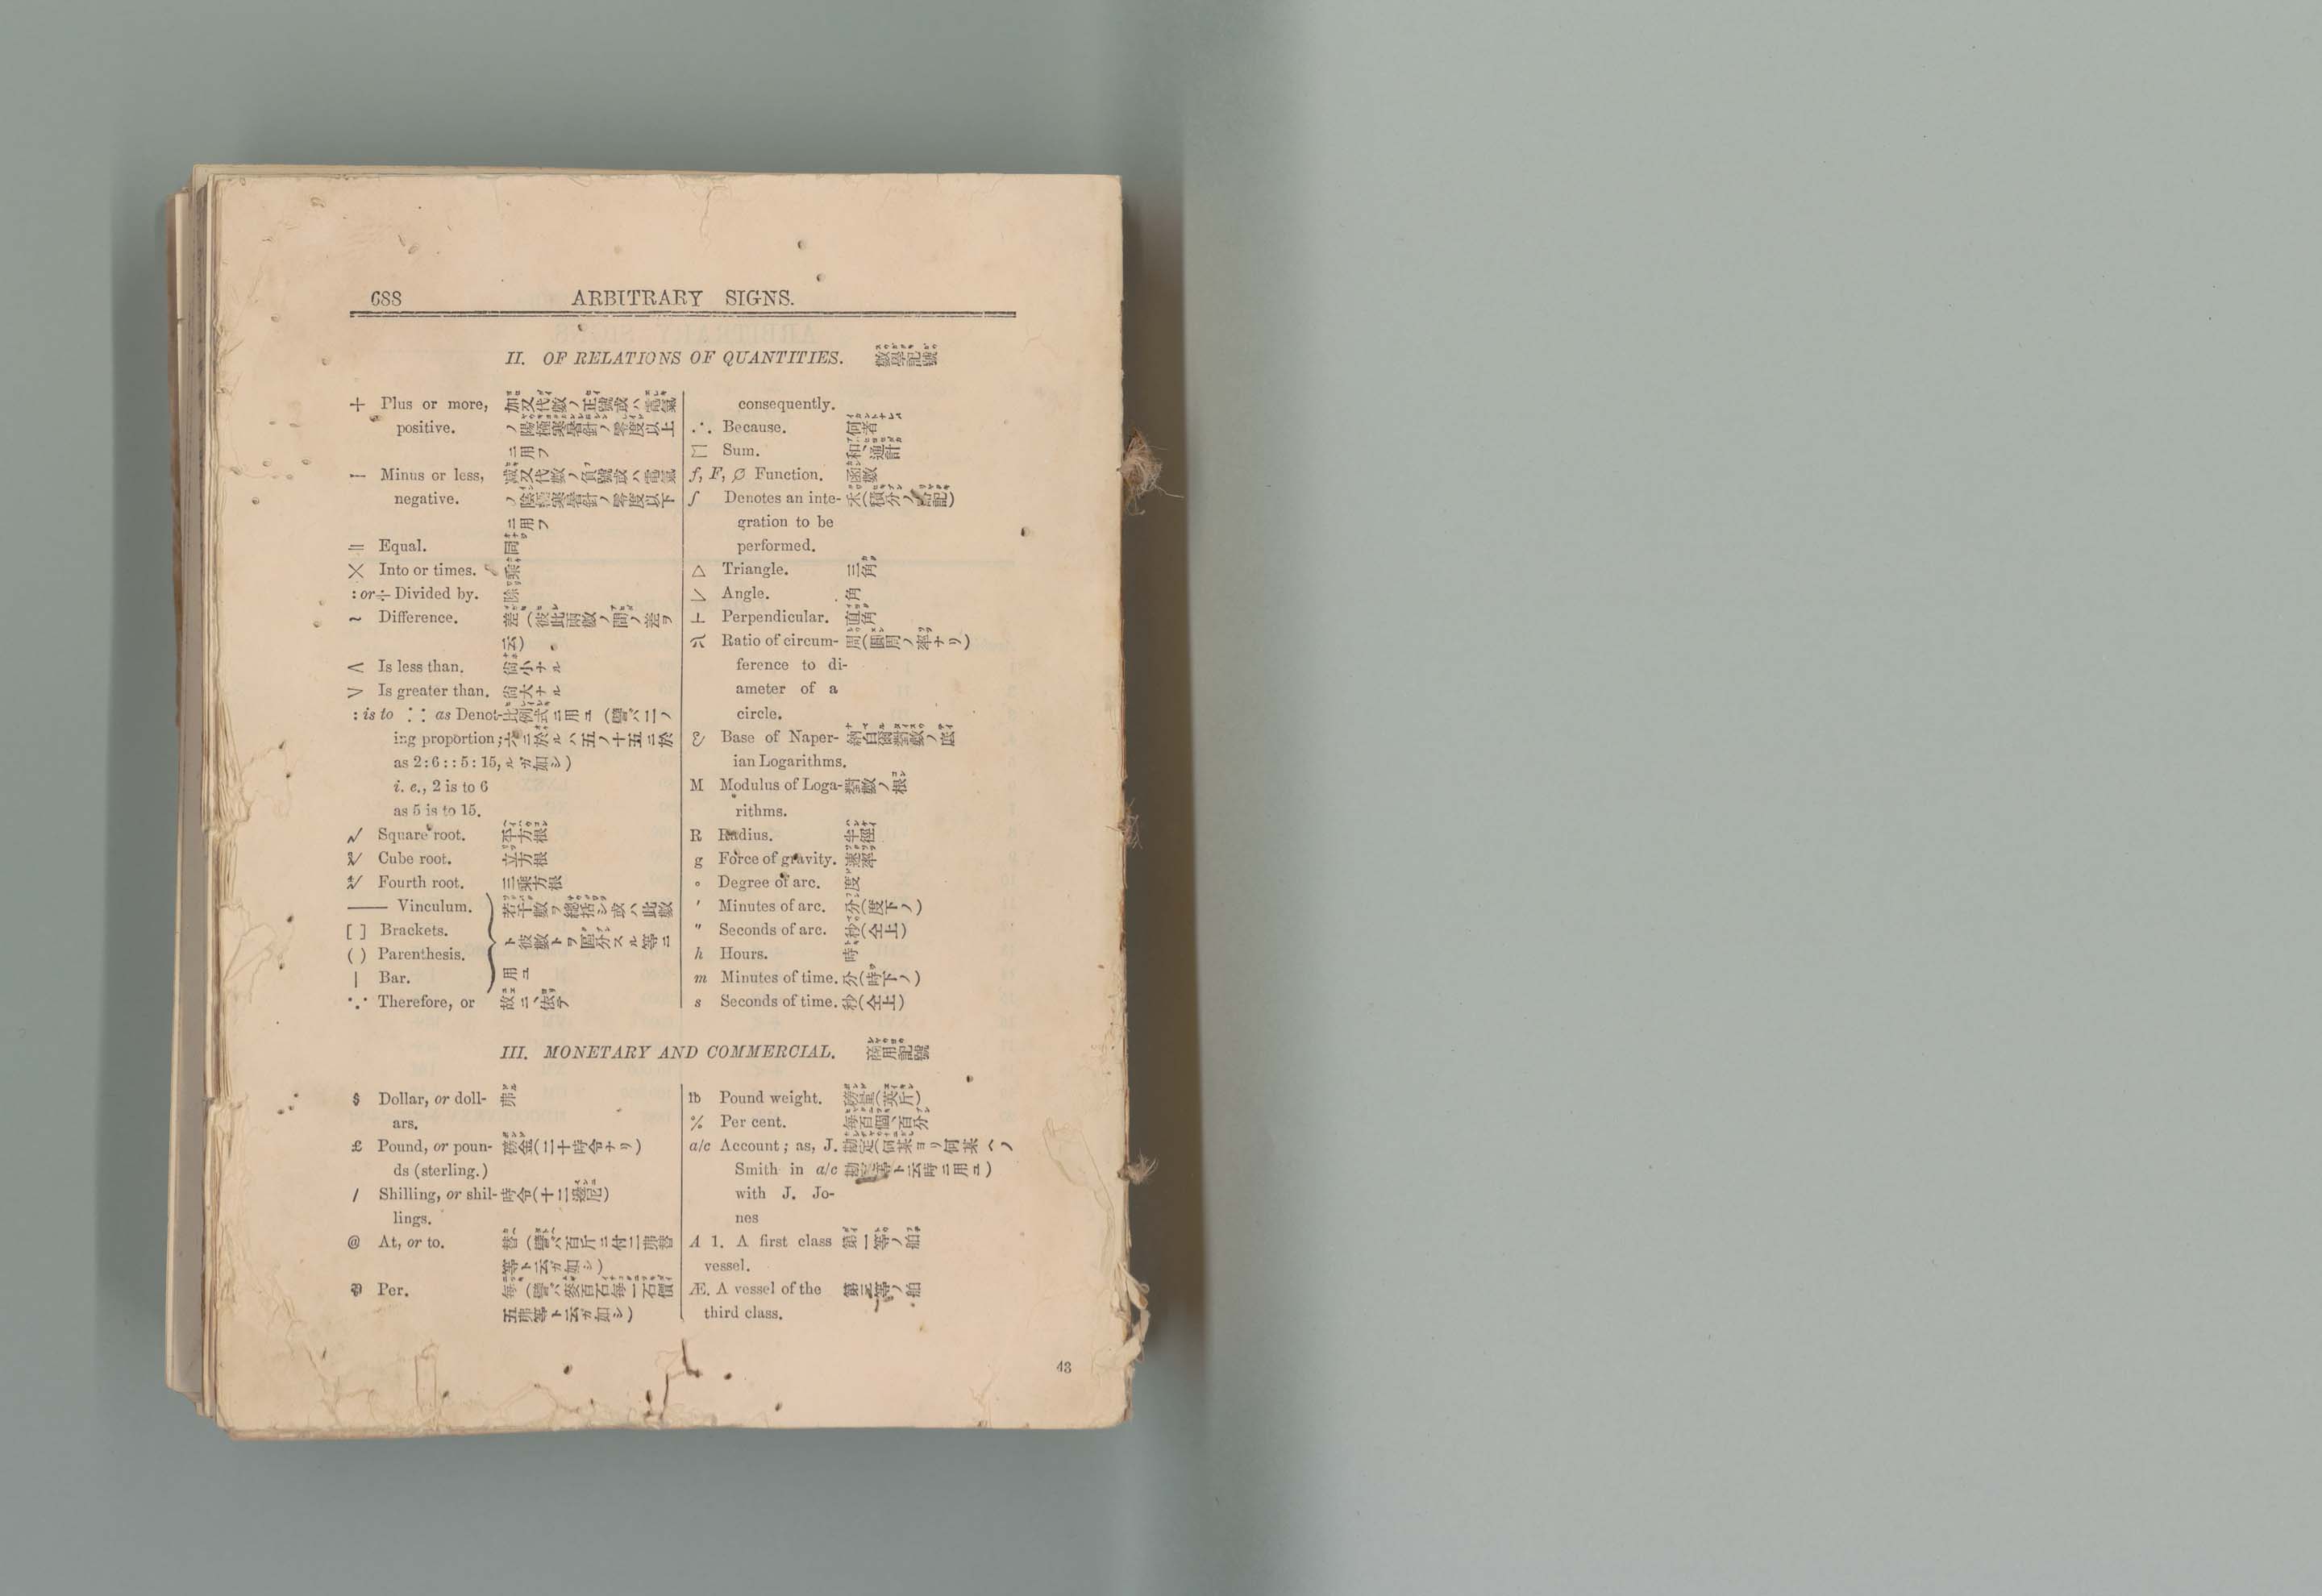 688 ARBITRARY SIGNS.
II. OF RELATIONS OF QUANTITIES. 數學記號
+ Plus or more, 加又代數ノ正號或ハ電氣
positive. ノ陽極寒暑針ノ零度以上
ニ用フ
— Minus or less, 減又代數ノ負號或ハ電氣
negative. ノ陰極寒暑針ノ零度以下
ニ用フ
= Equal. 同
× Into or times. 乘
: or ÷ Divided by. 除
~ Difference. 差(彼此兩數ノ間ノ差ヲ
云)
< Is less than. 尙小ナル
> Is greater than. 尙大ナル
: is to ∷ as Denot- 比例式ニ用ユ (譬バ二ノ
ing proportion; 六ニ於ルハ五ノ十五ニ於
as 2:6::5:15, ルガ如シ)
i. e., 2 is to 6
as 5 is to 15.
√ Square root. 平方根
∛ Cube root. 立方根
∜ Fourth root. 三乘方根
—— Vinculum. 若干數ヲ總括シ或ハ此數
[ ] Brackets. ト彼數トヲ區分スル等ニ
( ) Parenthesis.
| Bar. 用ユ
∵ Therefore, or 故ニ、依テ
consequently.
∴ Because. 何者
Σ Sum. 和、通計
f, F, ∅ Function. 函數
∫ Denotes an inte- (積分ノ記)
gration to be
performed.
△ Triangle. 三角
Angle. 角
⊥ Perpendicular. 直角
π Ratio of circum- 周(圓周ノ率ナリ)
ference to di-
ameter of a
circle.
Base of Naper- 納白爾對數ノ底
ian Logarithms.
M Modulus of Loga- 對數ノ根
rithms.
R Radius. 半徑
g Force of gravity. 速率
° Degree of arc. 度
′ Minutes of arc. 分(度下ノ)
″ Seconds of arc. 秒(仝上)
h Hours. 時
m Minutes of time. 分(時下ノ)
s Seconds of time. 秒(仝上)
III. MONETARY AND COMMERCIAL. 商用記號
$ Dollar, or doll- 弗
ars.
£ Pound, or poun- 磅金(二十時令ナリ)
ds (sterling.)
/ Shilling, or shil- 時令(十二邊尼)
lings.
@ At, or to. 替 (譬バ百斤ニ付二弗替
等ト云ガ如シ)
Per. 每 (譬バ麥百石每一石價
五弗等ト云ガ如シ)
lb Pound weight. 磅量(英斤)
% Per cent. 每百個、百分
a/c Account; as, J. 勘定(何某ヨリ何某ヘノ
Smith in a/c 勘定等ト云時ニ用ユ)
with J. Jo-
nes
A 1. A first class 第一等ノ舶
vessel.
Æ. A vessel of the 第三等ノ舶
third class.
43